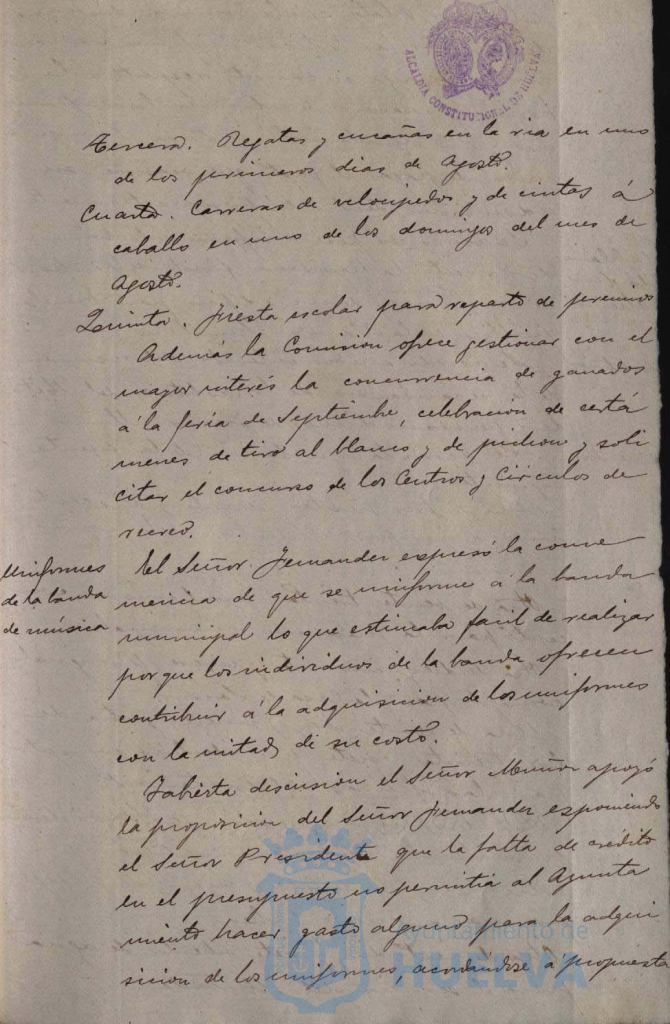 ALCALDIA CONSTITUCIONAL DE HUELVA
Tercera. Regatas y cucañas en la ria en uno
de los primeros dias de Agosto.
Cuarta. Carreras de velocipedos y de cintas á
caballo en uno de los domingos del mes de
Agosto.
Quinta. Fiesta escolar para reparto de premios
Además la Comision ofrece gestionar con el
mayor interés la concurrencia de ganados
á la feria de Septiembre, celebracion de certá
menes de tiro al blanco y de pichon y soli
citar el concurso de los Centros y Circulos de
recreo.
Uniformes
de la banda
de música
El Señor Fernandez expresó la conve
niencia de que se uniforme á la banda
municipal lo que estimaba facil de realizar
por que los individuos de la banda ofrecen
contribuir á la adquisicion de los uniformes
con la mitad de su costo.
Yabierta discusion el Señor Muñoz apoyó
la proposicion del Señor Fernandez exponiendo
el Señor Presidente que la falta de crédito
en el presupuesto no permitia al Ayunta
miento hacer gasto alguno para la adqui
sicion de los uniformes, acordandose á propuesta
Ayuntamiento de
HUELVA